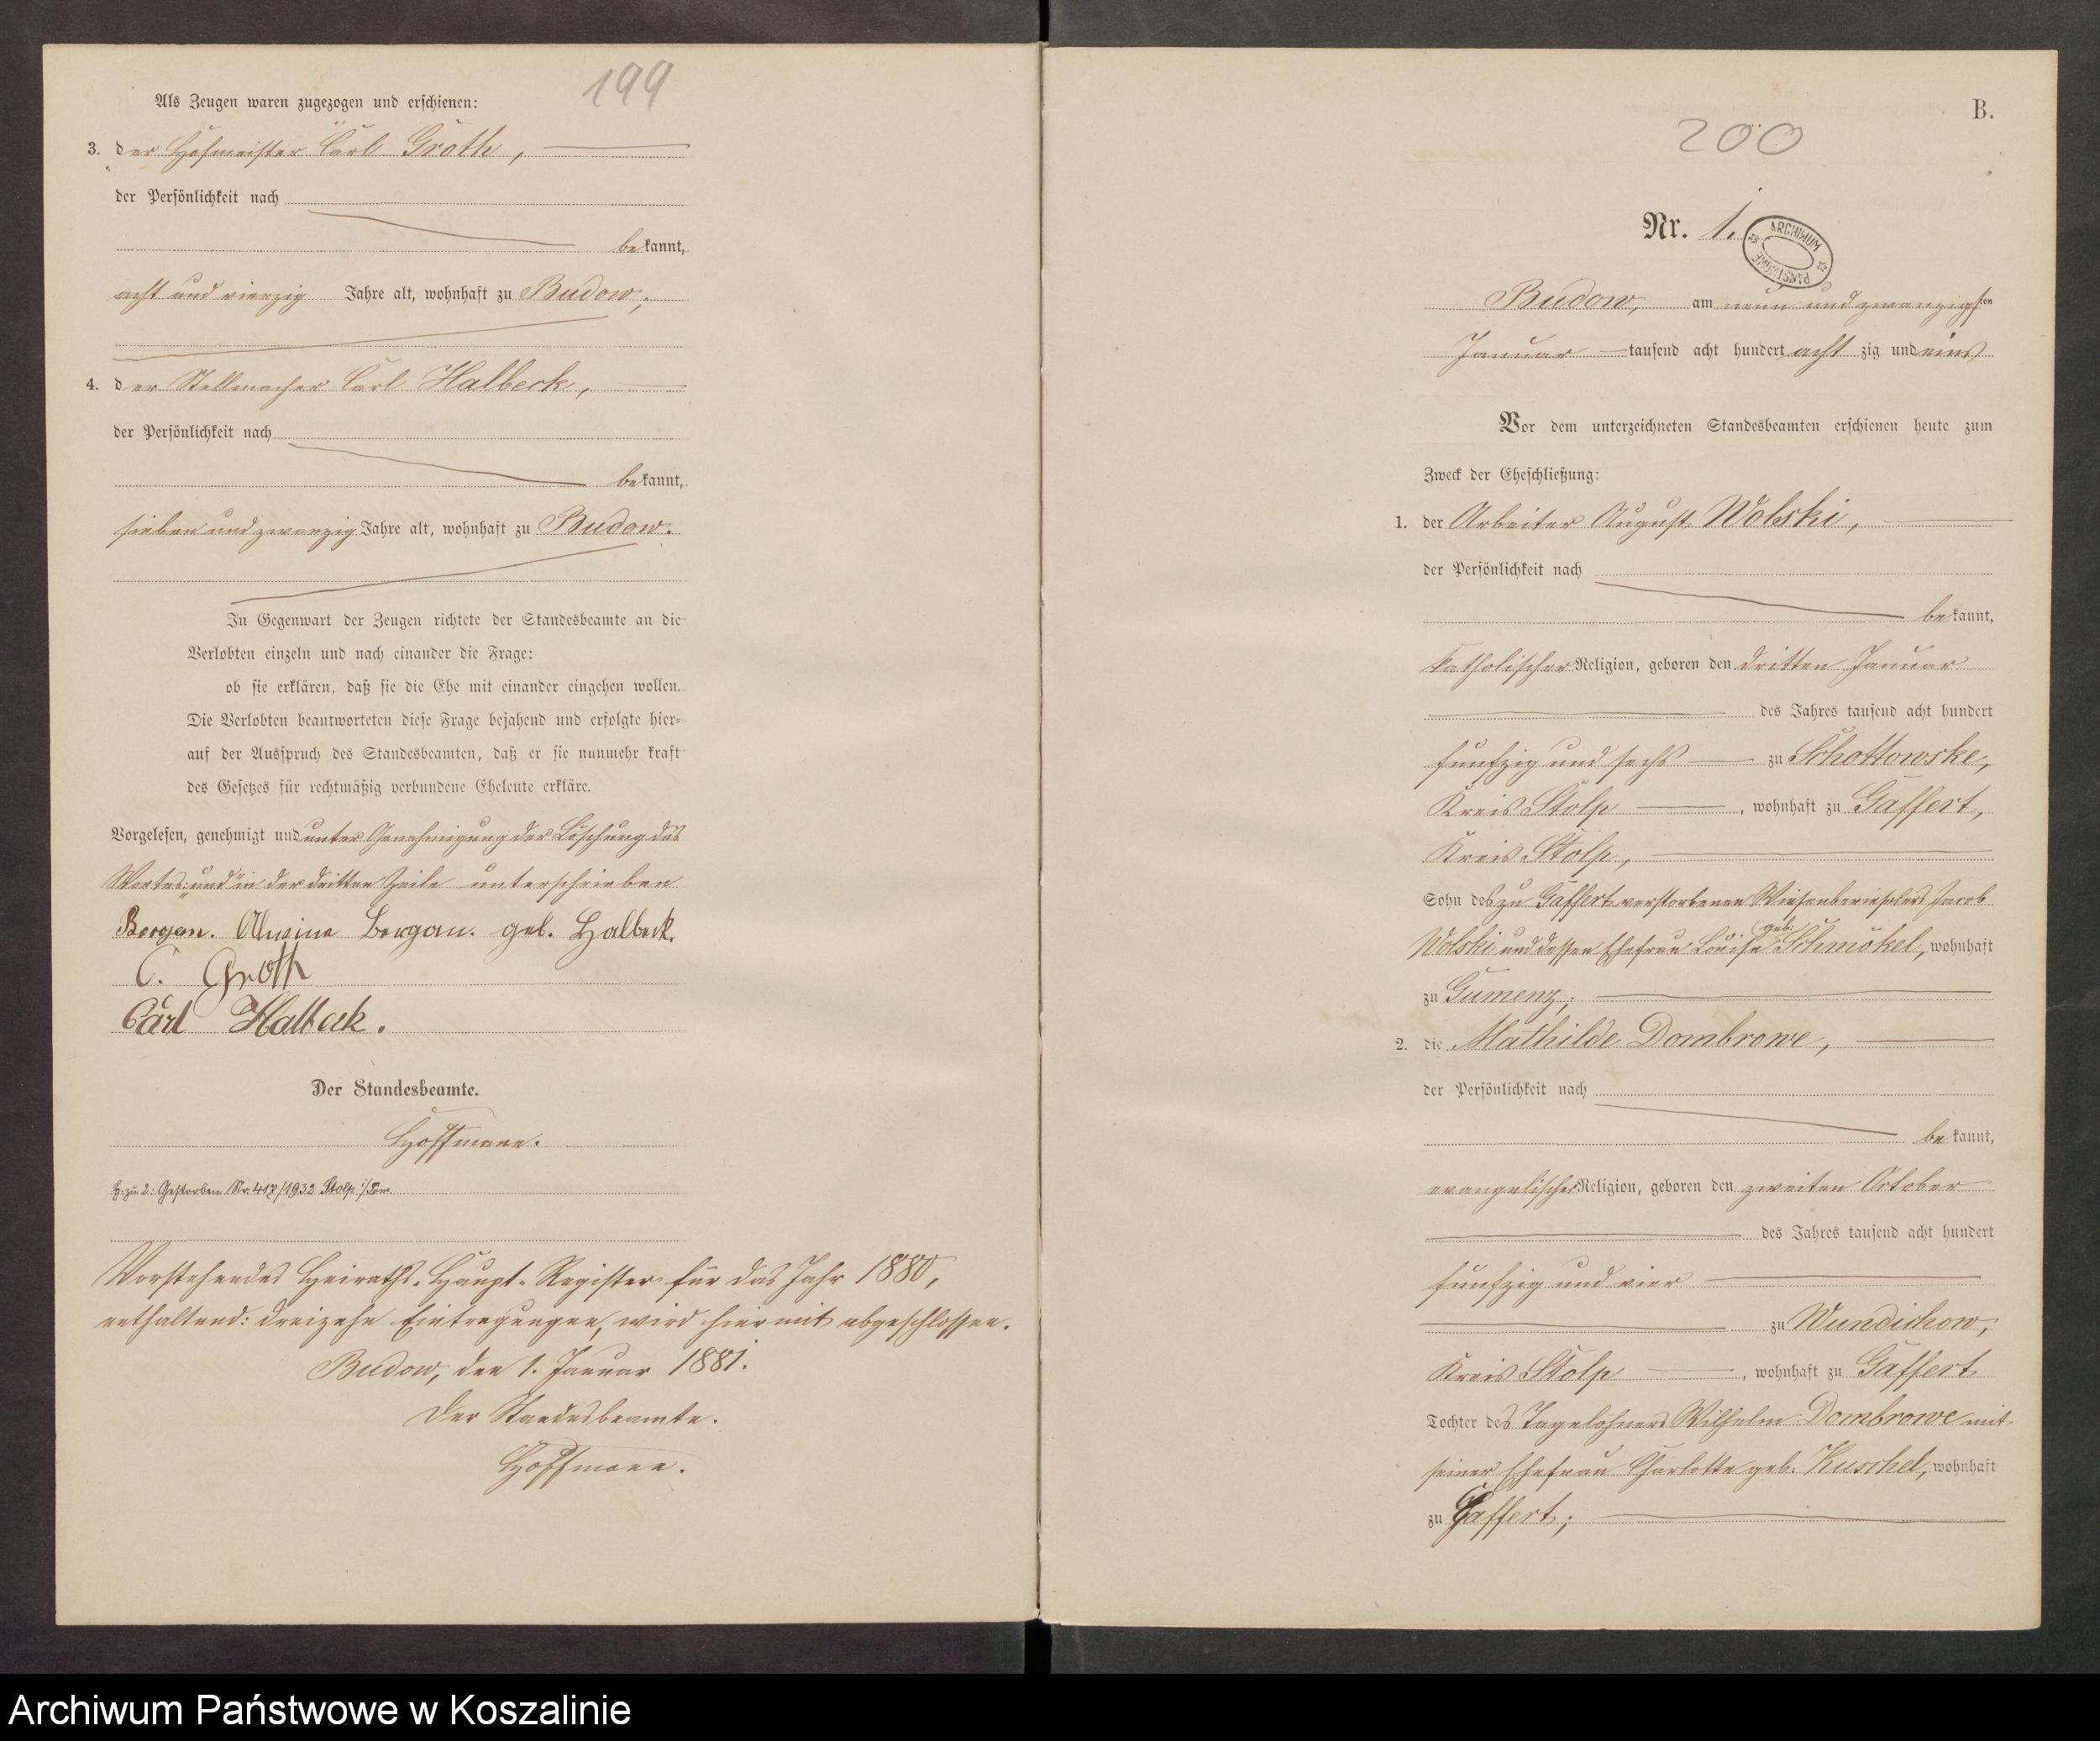 199
Als Zeugen waren zugezogen und erschienen:
3. der Hofmeister Carl Groth,
der Persönlichkeit nach
bekannt,
acht und vierzig Jahre alt, wohnhaft zu Budow;
4. der Stellmacher Carl Halbeck,
der Persönlichkeit nach
bekannt,
sieben und zwanzig Jahre alt, wohnhaft zu Budow.
In Gegenwart der Zeugen richtete der Standesbeamte an die
Verlobten einzeln und nach einander die Frage:
ob sie erklären, daß sie die Ehe mit einander eingehen wollen.
Die Verlobten beantworteten diese Frage bejahend und erfolgte hier-
auf der Ausspruch des Standesbeamten, daß er sie nunmehr kraft
des Gesetzes für rechtmäßig verbundene Eheleute erkläre.
Vorgelesen, genehmigt und unter Genehmigung der Löschung des
Wortes: „und" in der dritten Zeile unterschrieben
Bergan. Alwine Bergan. geb. Halbeck.
C. Groth
Carl Halbeck.
Der Standesbeamte.
Hoffmann.
zu 2: Gestorben Nr. 417/1932 Stolp i/Pom.
Vorstehendes Heiraths-Haupt-Register für das Jahr 1880,
enthaltend: dreizehn Eintragungen, wird hiermit abgeschlossen.
Budow, den 1. Januar 1881.
Der Standesbeamte.
Hoffmann.
B.
200
Nr. 1.
ARCHIWUM PAŃSTWOWE
Budow, am neun und zwanzigsten
Januar tausend acht hundert achtzig und eins
Vor dem unterzeichneten Standesbeamten erschienen heute zum
Zweck der Eheschließung:
1. der Arbeiter August Wolski,
der Persönlichkeit nach
bekannt,
katholischer Religion, geboren den dritten Januar
des Jahres tausend acht hundert
fünfzig und sechs zu Schottowske,
Kreis Stolp, wohnhaft zu Gaffert,
Kreis Stolp,
Sohn des zu Gaffert verstorbenen Wiesenberieselers Jacob
Wolski und dessen Ehefrau Louise geb. Schmökel, wohnhaft
zu Gumenz;
2. die Mathilde Dombrowe,
der Persönlichkeit nach
bekannt,
evangelischer Religion, geboren den zweiten October
des Jahres tausend acht hundert
fünfzig und vier
zu Wundichow,
Kreis Stolp, wohnhaft zu Gaffert
Tochter des Tagelöhners Wilhelm Dombrowe mit
seiner Ehefrau Charlotte geb. Kuschel, wohnhaft
zu Gaffert;
Archiwum Państwowe w Koszalinie